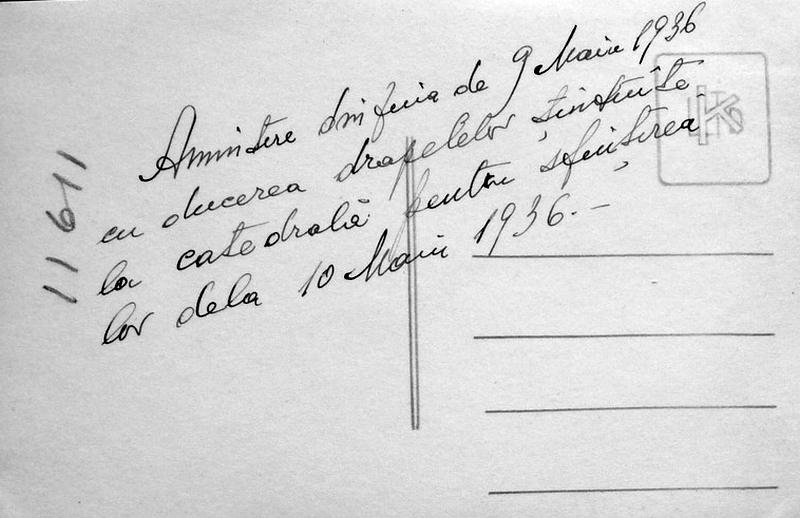 Amintire din ziua de 9 Maiu 1936
cu ducerea drapelelor
la catedrală pentru sfințirea
lor dela 10 Maiu 1936.-
11611